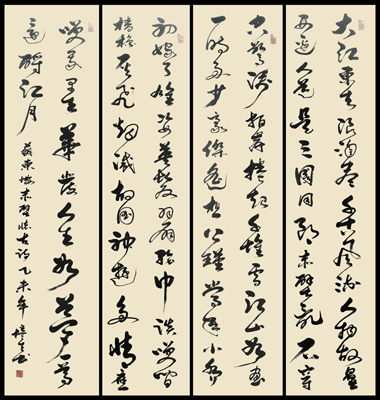 大江東去浪淘盡千古風流人物故壘
西邊人道是三國周郎赤壁亂石穿
空驚濤拍岸捲起千堆雪江山如畫
一時多少豪傑遙想公瑾當年小喬
初嫁了雄姿英發羽扇綸巾談笑間
檣櫓灰飛煙滅故國神遊多情應
笑我早生華髮人生如夢一尊
還酹江月
蘇東坡赤壁懷古 乙未年